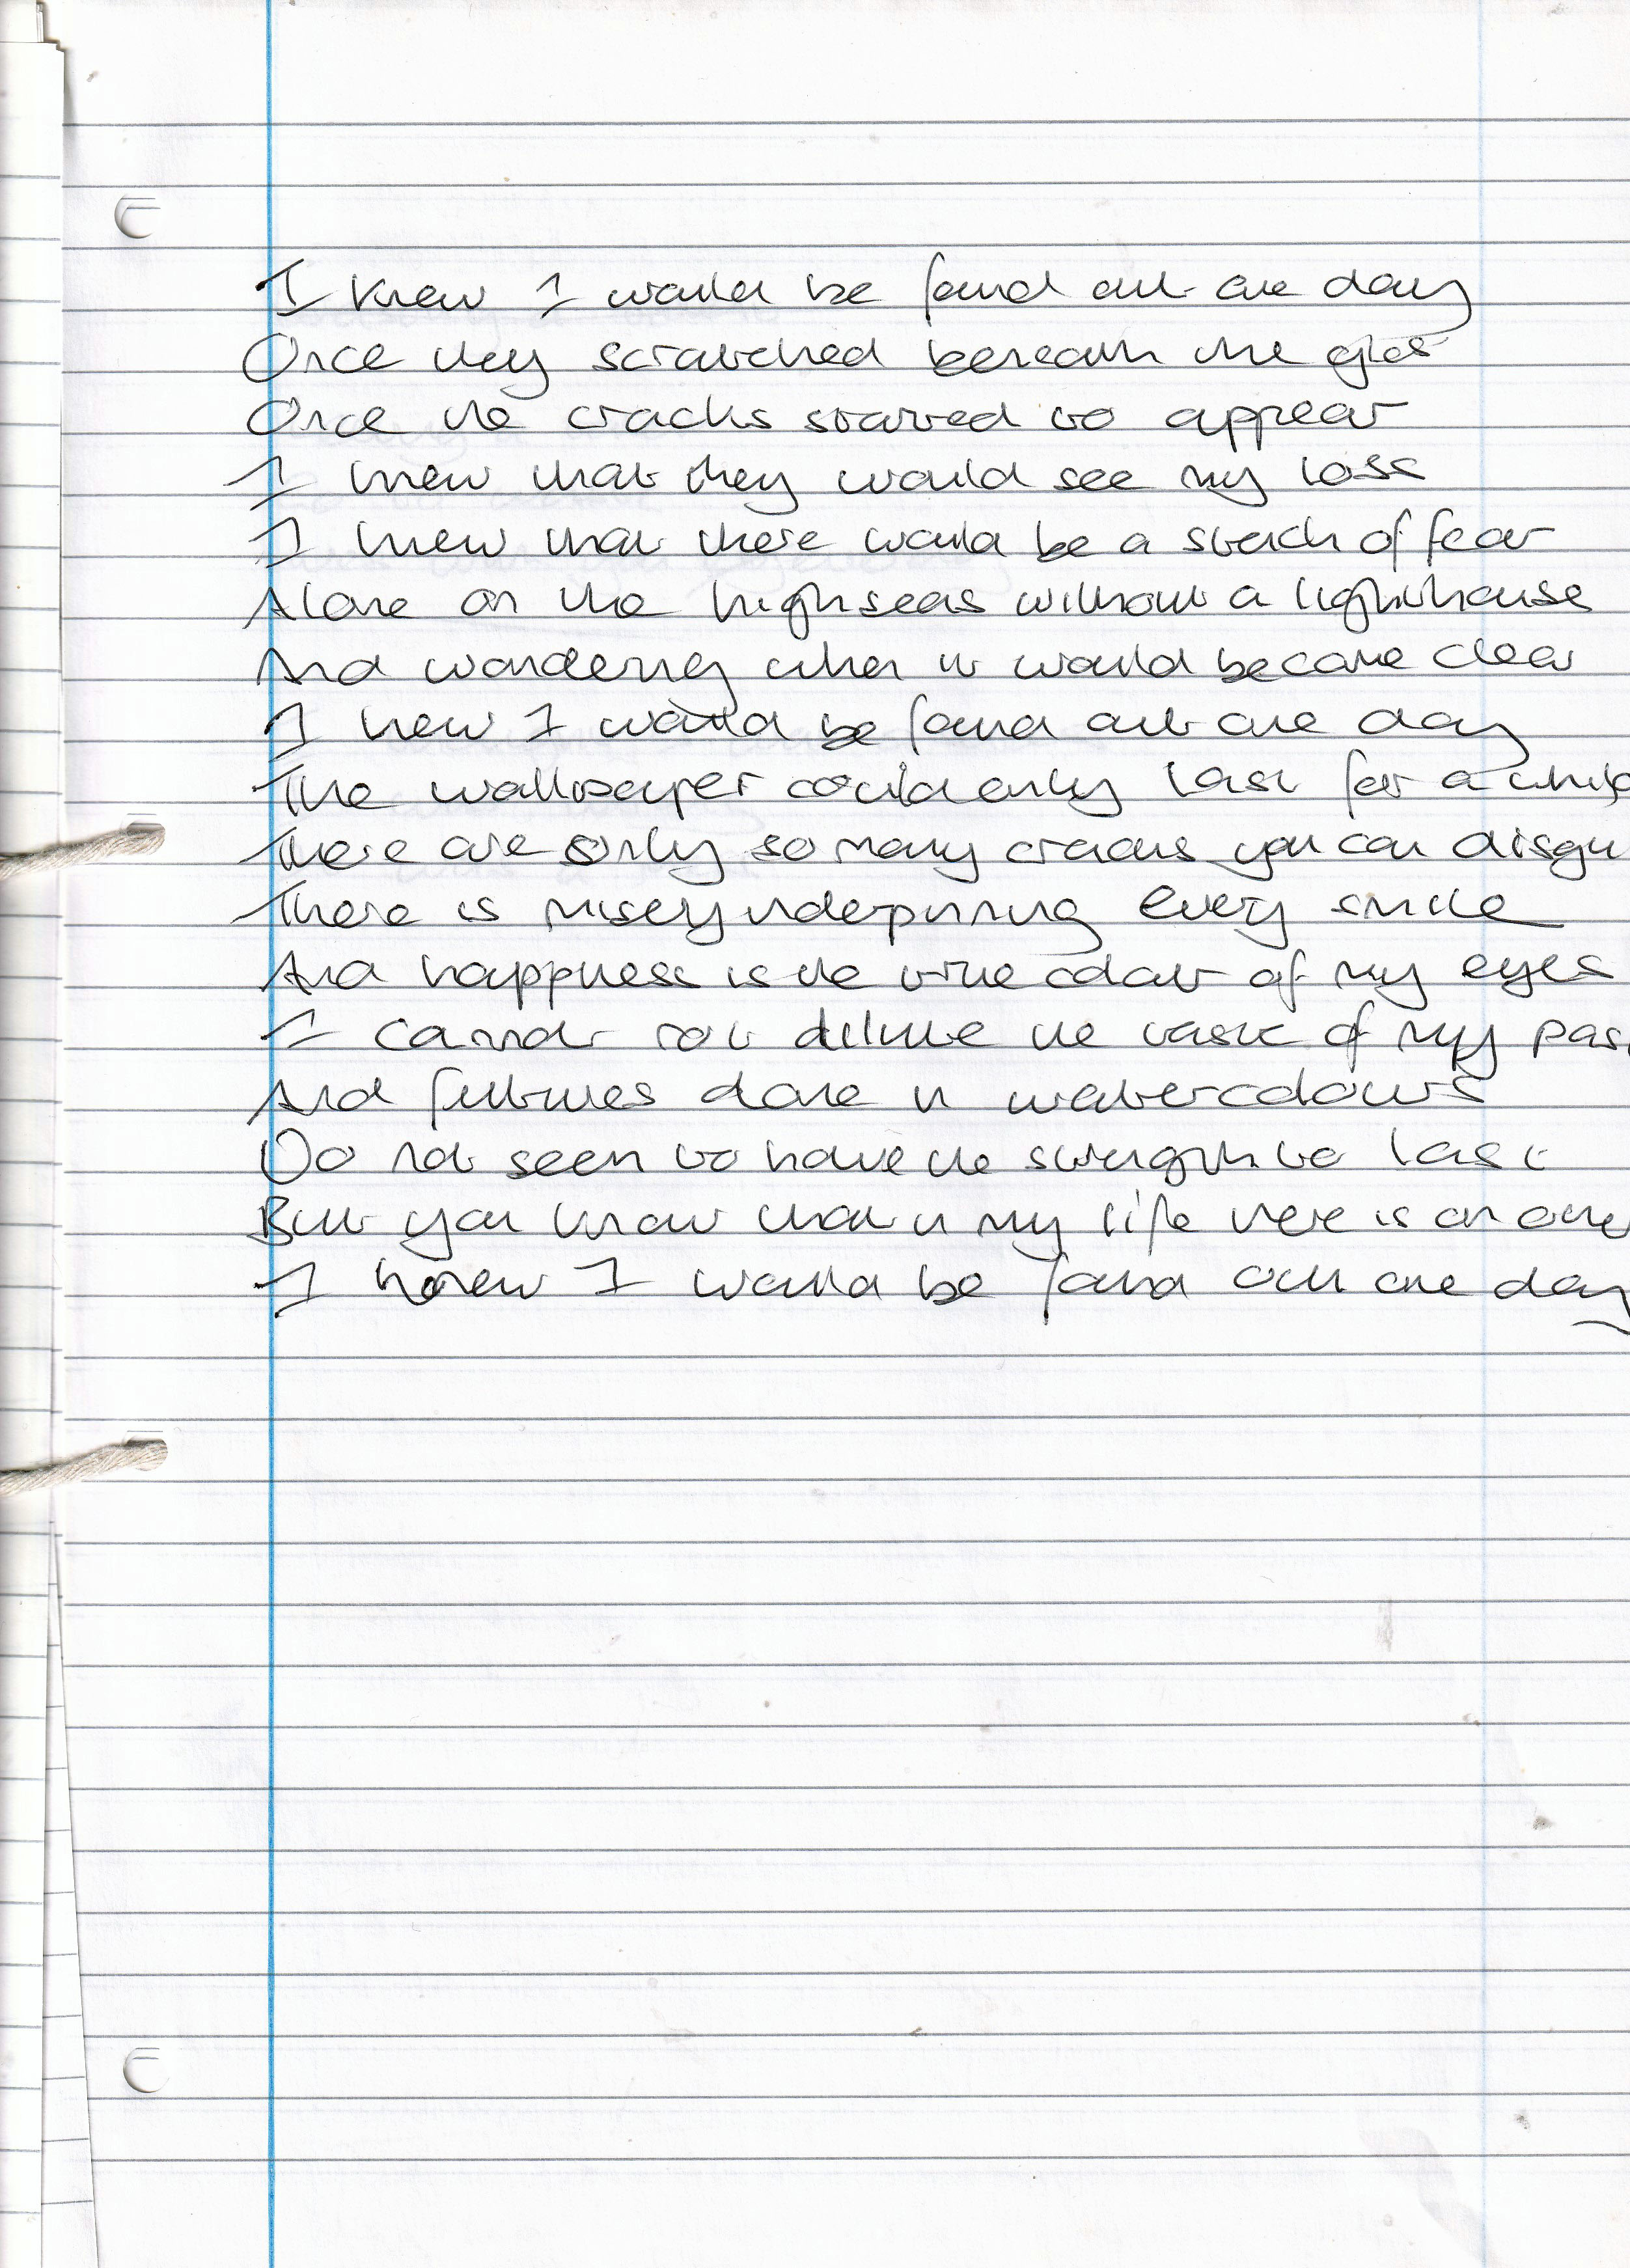 I knew I would be found out one day
Once they scratched beneath the glos
Once the cracks started to appear
I knew that they would see my loss
I knew that there would be a stench of fear
Alone on the high seas without a lighthouse
And wondering when it would become clear
I knew I would be found out one day
The wallpaper could only last for a while
There are only so many cracks you can disgu
There is misery underpinning every smile
And happiness is the true colour of my eyes
I cannot not dilute the task of my pas
And futures done in watercolours
Do not seem to have the strength to last
But you know that in my life there is an
I knew I would be found out one day